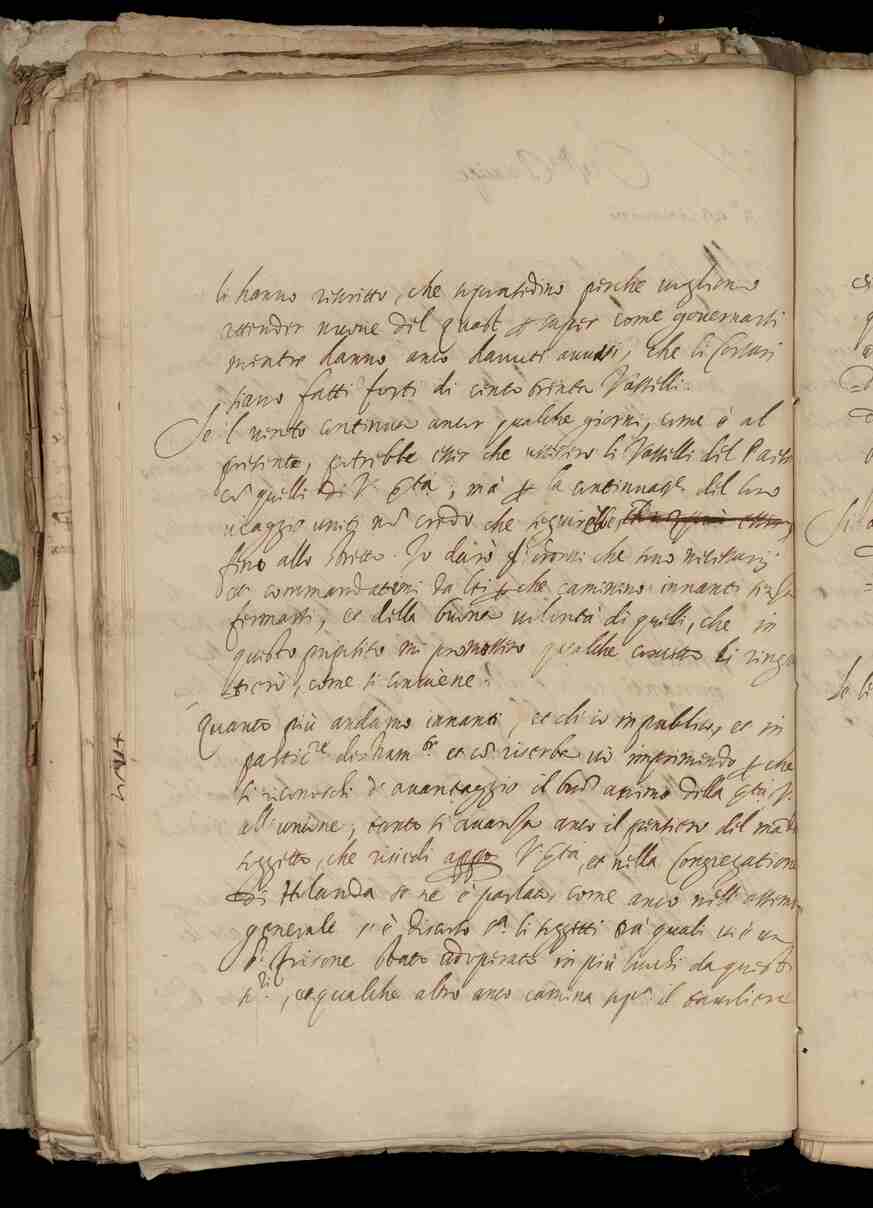 li hanno riscritto, che soprasedino perche vogliono
attender nuove del quast per saper come governarsi
mentre hanno anco havuti avvisi, che li Corsari
siano fatti forti di cento trenta Vasselli.
Se il vento continua ancor qualche giorni, come è al
presente, potrebbe esser che uscissero li Vasselli del Paese
con quelli di V. Serta; mà per la continuatne del suo
viaggio uniti non credo che seguirebbe
fino allo stretto. Io darò gl'ordini che sono necessarij
et commandatemi da lei per che caminino innanti senza
fermarsi, et della buona volontà di quelli, che in
questo proposito mi promettero qualche li ringra
tierò, come si conviene.
Quanto più andamo innanti, et ch'io in publico, et in
particre destramte et con riserba vò imprimendo per che
si riconoschi d'avantaggio il buon animo della Sertà V.
all'unione, tanto si avanza anco il pensiero del mandar
soggetto, che risiedi appo V. Sertà, et nella Congregatione
di Holanda se ne è parlato, come anco nell'assemblea
generale s'è discorso sopra li soggetti trà quali vi è un
Sr Frisone stato adoperato in più luochi da questi
Sri, et qualche altro anco camina sopra il tavoliere